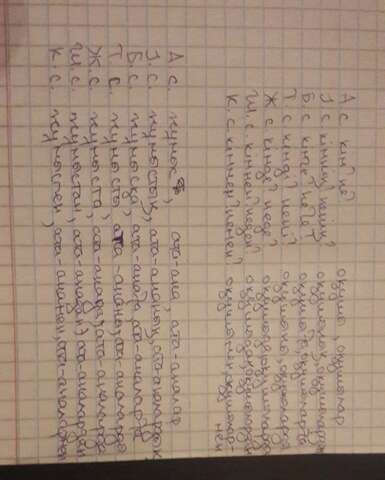 А с. кім? не? оқушы, оқушылар
І с. кімнің? ненің? оқушының, оқушылардың
Б. с. кімге? неге? оқушыға, оқушыларға
Т с. кімді? нені? оқушыны, оқушыларды
Ж с. кімде? неде? оқушыда, оқушыларда
Ш. с. кімнен? неден? оқушыдан, оқушылардан
К. с. кіммен? немен? оқушымен, оқушылармен
А с. жұмыс, ата-ана, ата-аналар
І. с. жұмыстың, ата-ананың, ата-аналардың
Б. с. жұмысқа, ата-анаға, ата-аналарға
Т. с. жұмысты, ата-ананы, ата-аналарды
Ж. с. жұмыста, ата-анада, ата-аналарда
Ш. с. жұмыстан, ата-анадан, ата-аналардан
К. с. жұмыспен, ата-анамен, ата-аналармен